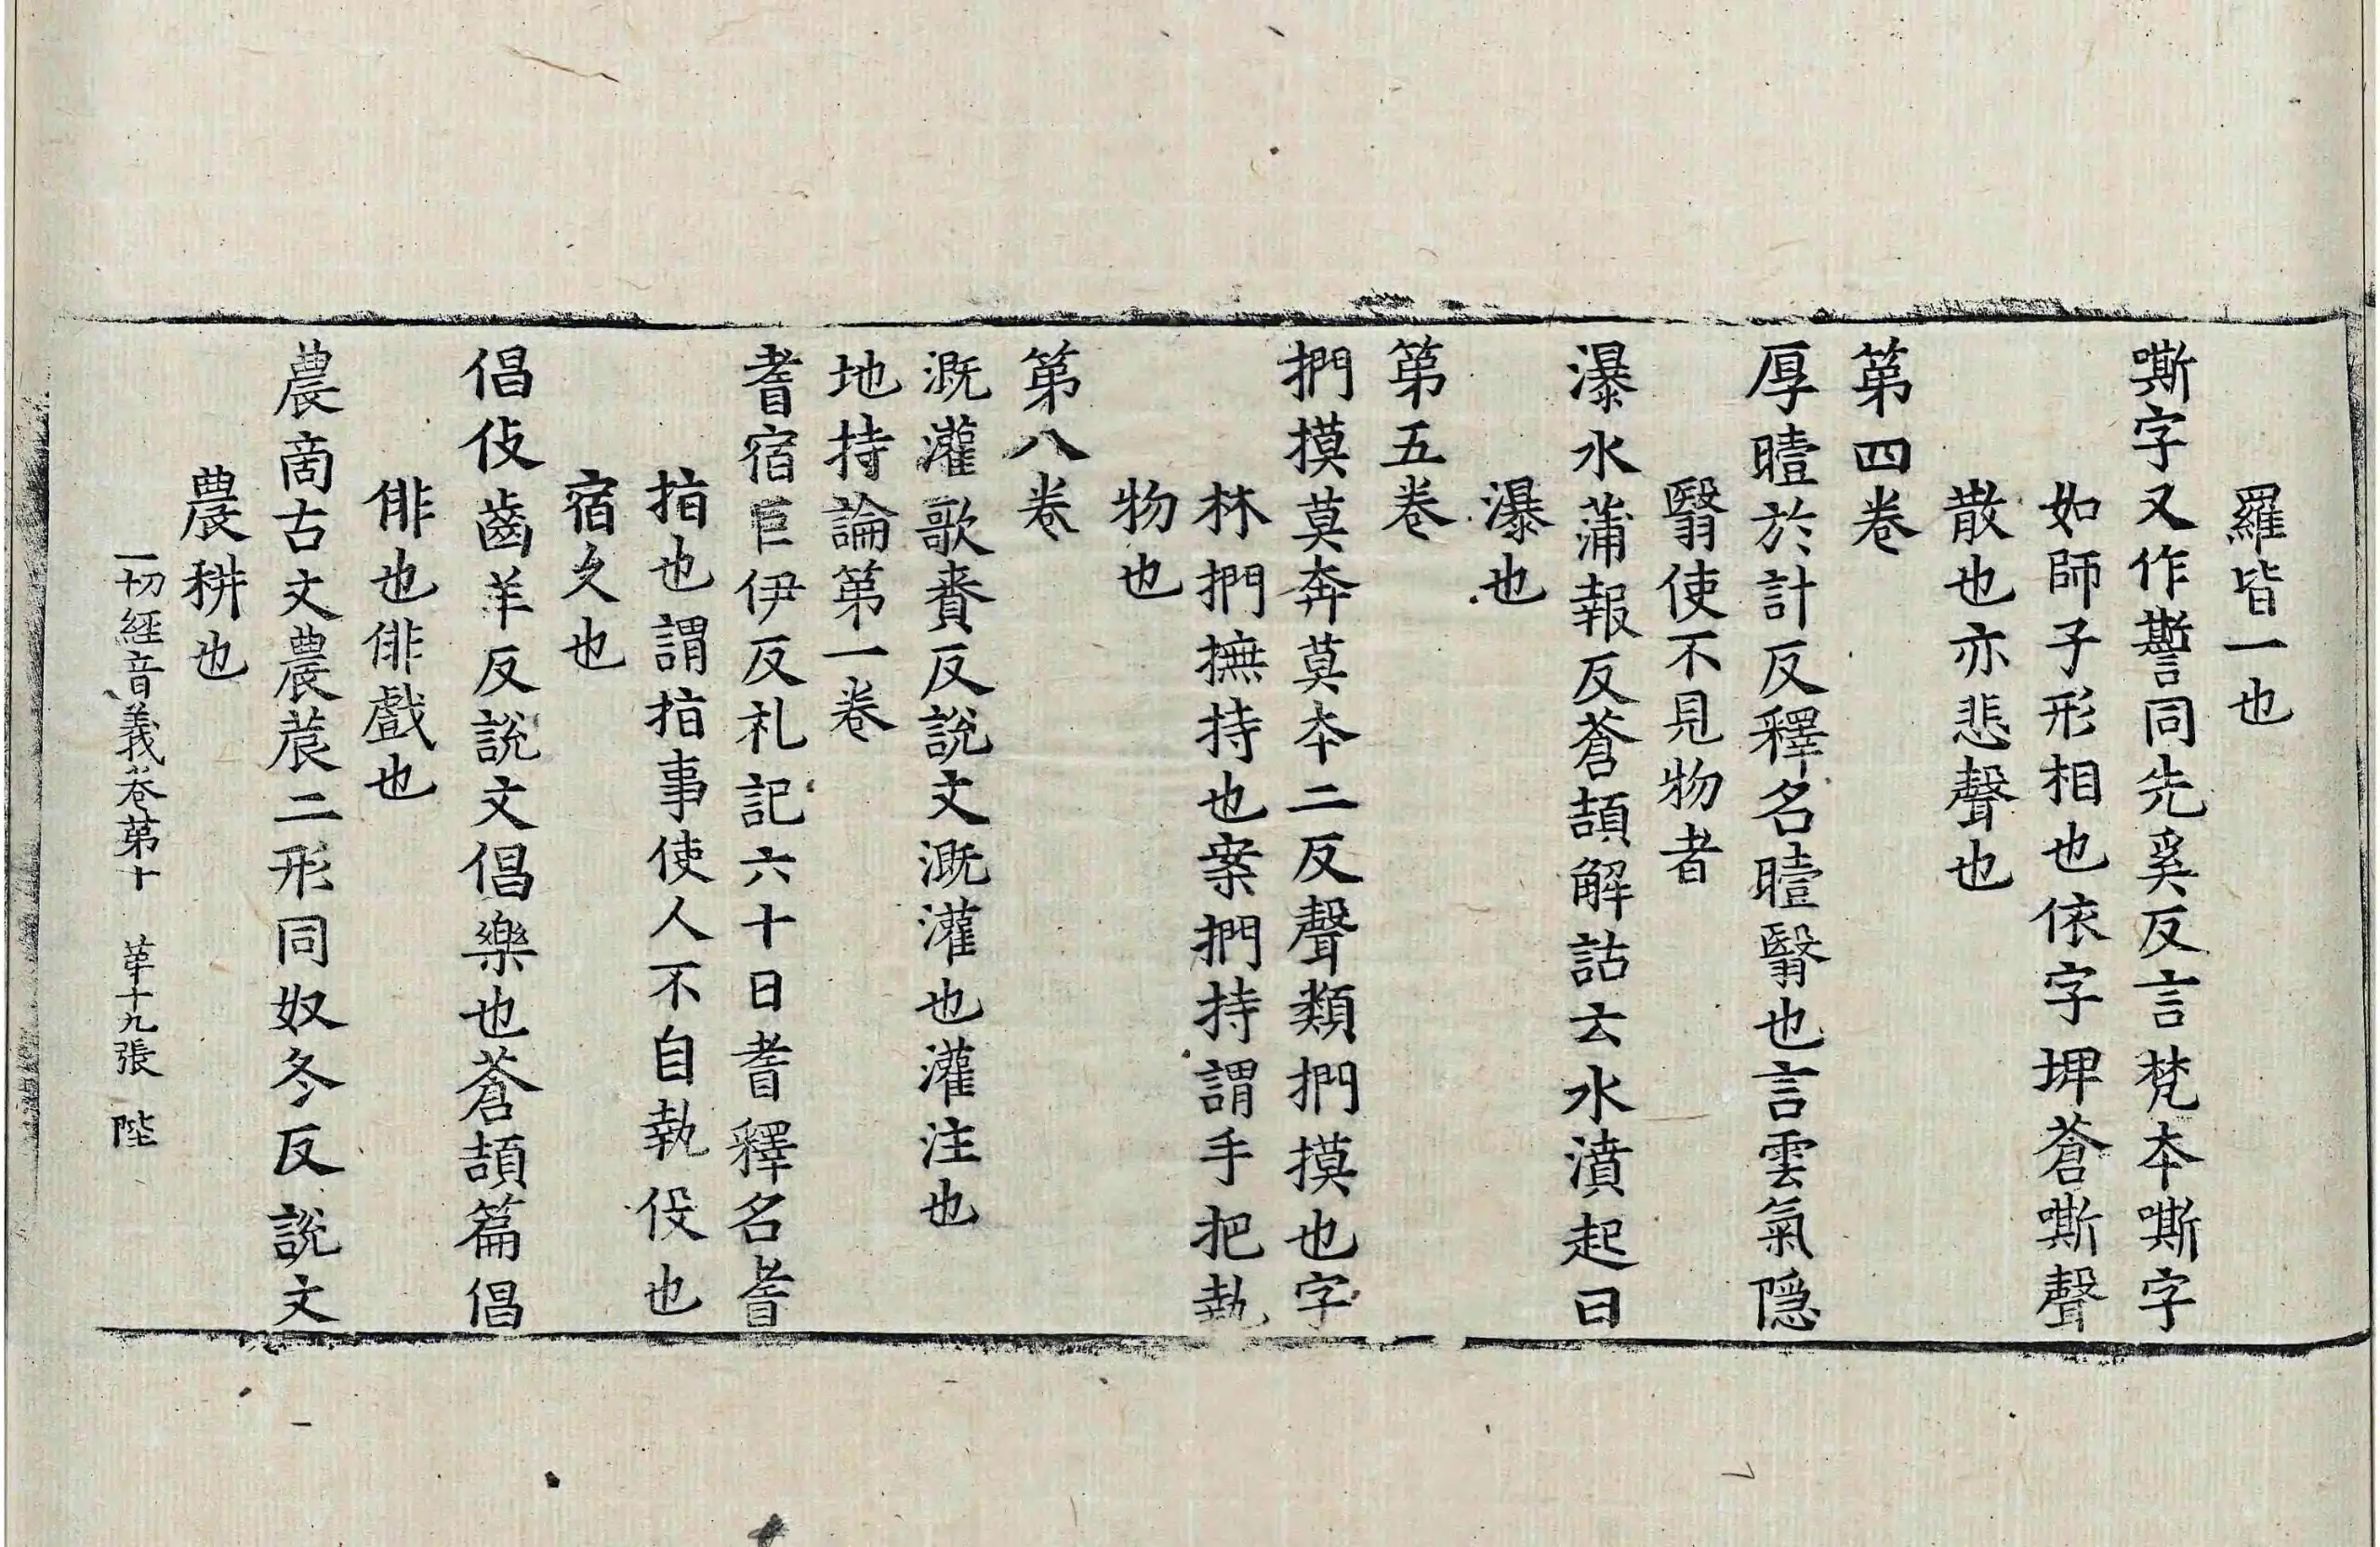 羅皆一也
嘶字又作誓同先奚反言梵夲嘶字
如師子形相也依字埤蒼嘶聲
散也亦悲聲也
第四卷
厚曀於計反釋名曀翳也言雲氣隱
翳使不見物者
瀑水蒲報反蒼頡解詁云水濆起曰
瀑也
第五卷
捫摸莫奔莫夲二反聲類捫摸也字
林捫撫持也案捫持謂手把執
物也
第八卷
溉灌歌賚反說文溉灌也灌注也
地持論第一卷
耆宿巨伊反礼記六十曰耆釋名耆
指也謂指事使人不自執伇也
宿久也
倡伎齒羊反說文倡樂也蒼頡篇倡
俳也俳戲也
農商古文農莀二形同奴冬反說文
農耕也
一切經音義卷第十 苐十九張 陛